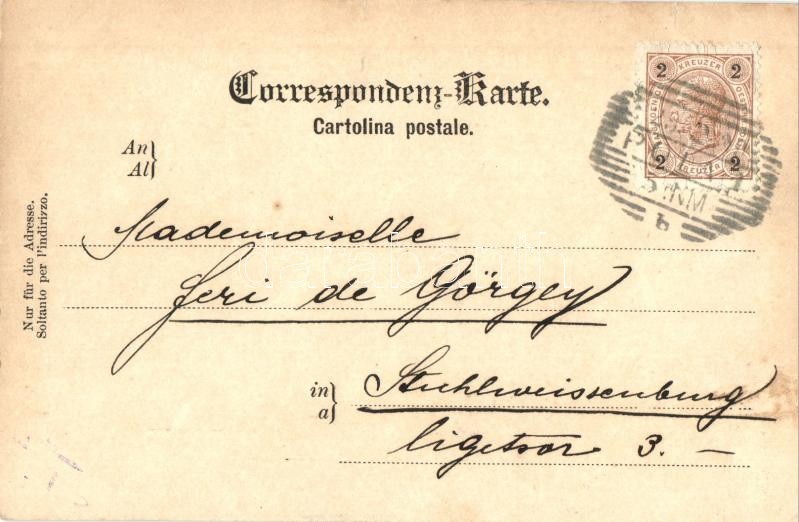 Correspondenz-Karte.
Cartolina postale.
2 KREUZER 2
2 KREUZER 2
An
Al
Nur für die Adresse.
Soltanto per l'indirizzo.
Mademoiselle
Feri de Görgey
in
a
Stuhlweissenburg
ligetsor 3. –
NM
b